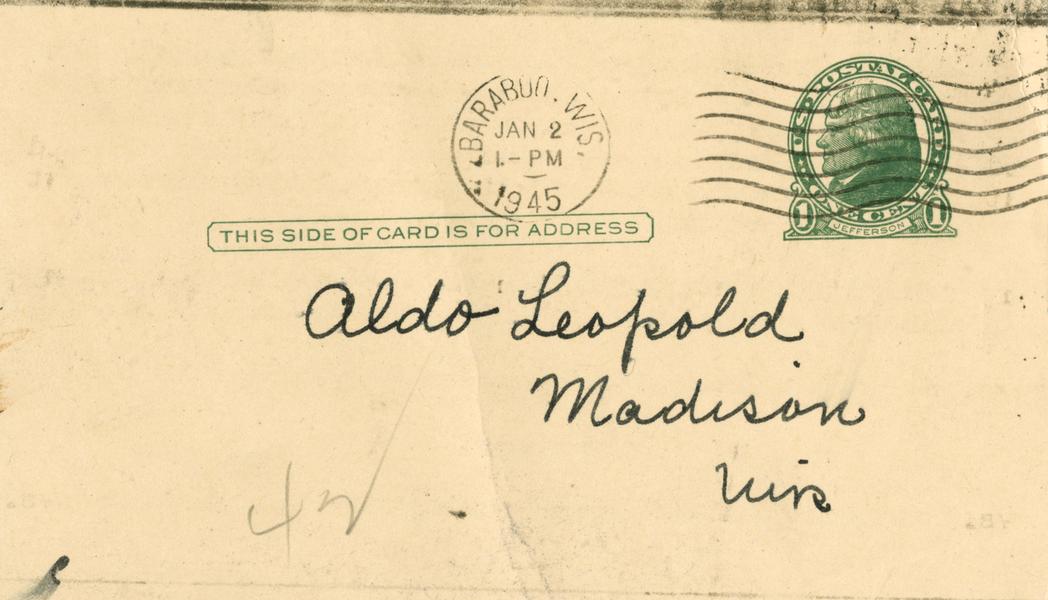 BARABOO. WIS.
JAN 2
1 - PM
1945
U.S. POSTAL CARD
ONE CENT
1 JEFFERSON 1
THIS SIDE OF CARD IS FOR ADDRESS
Aldo Leopold
Madison
Wis